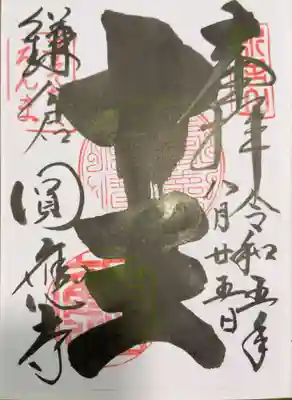 奉拝 令和五年
八月廿五日
十王
鎌倉
圓應寺